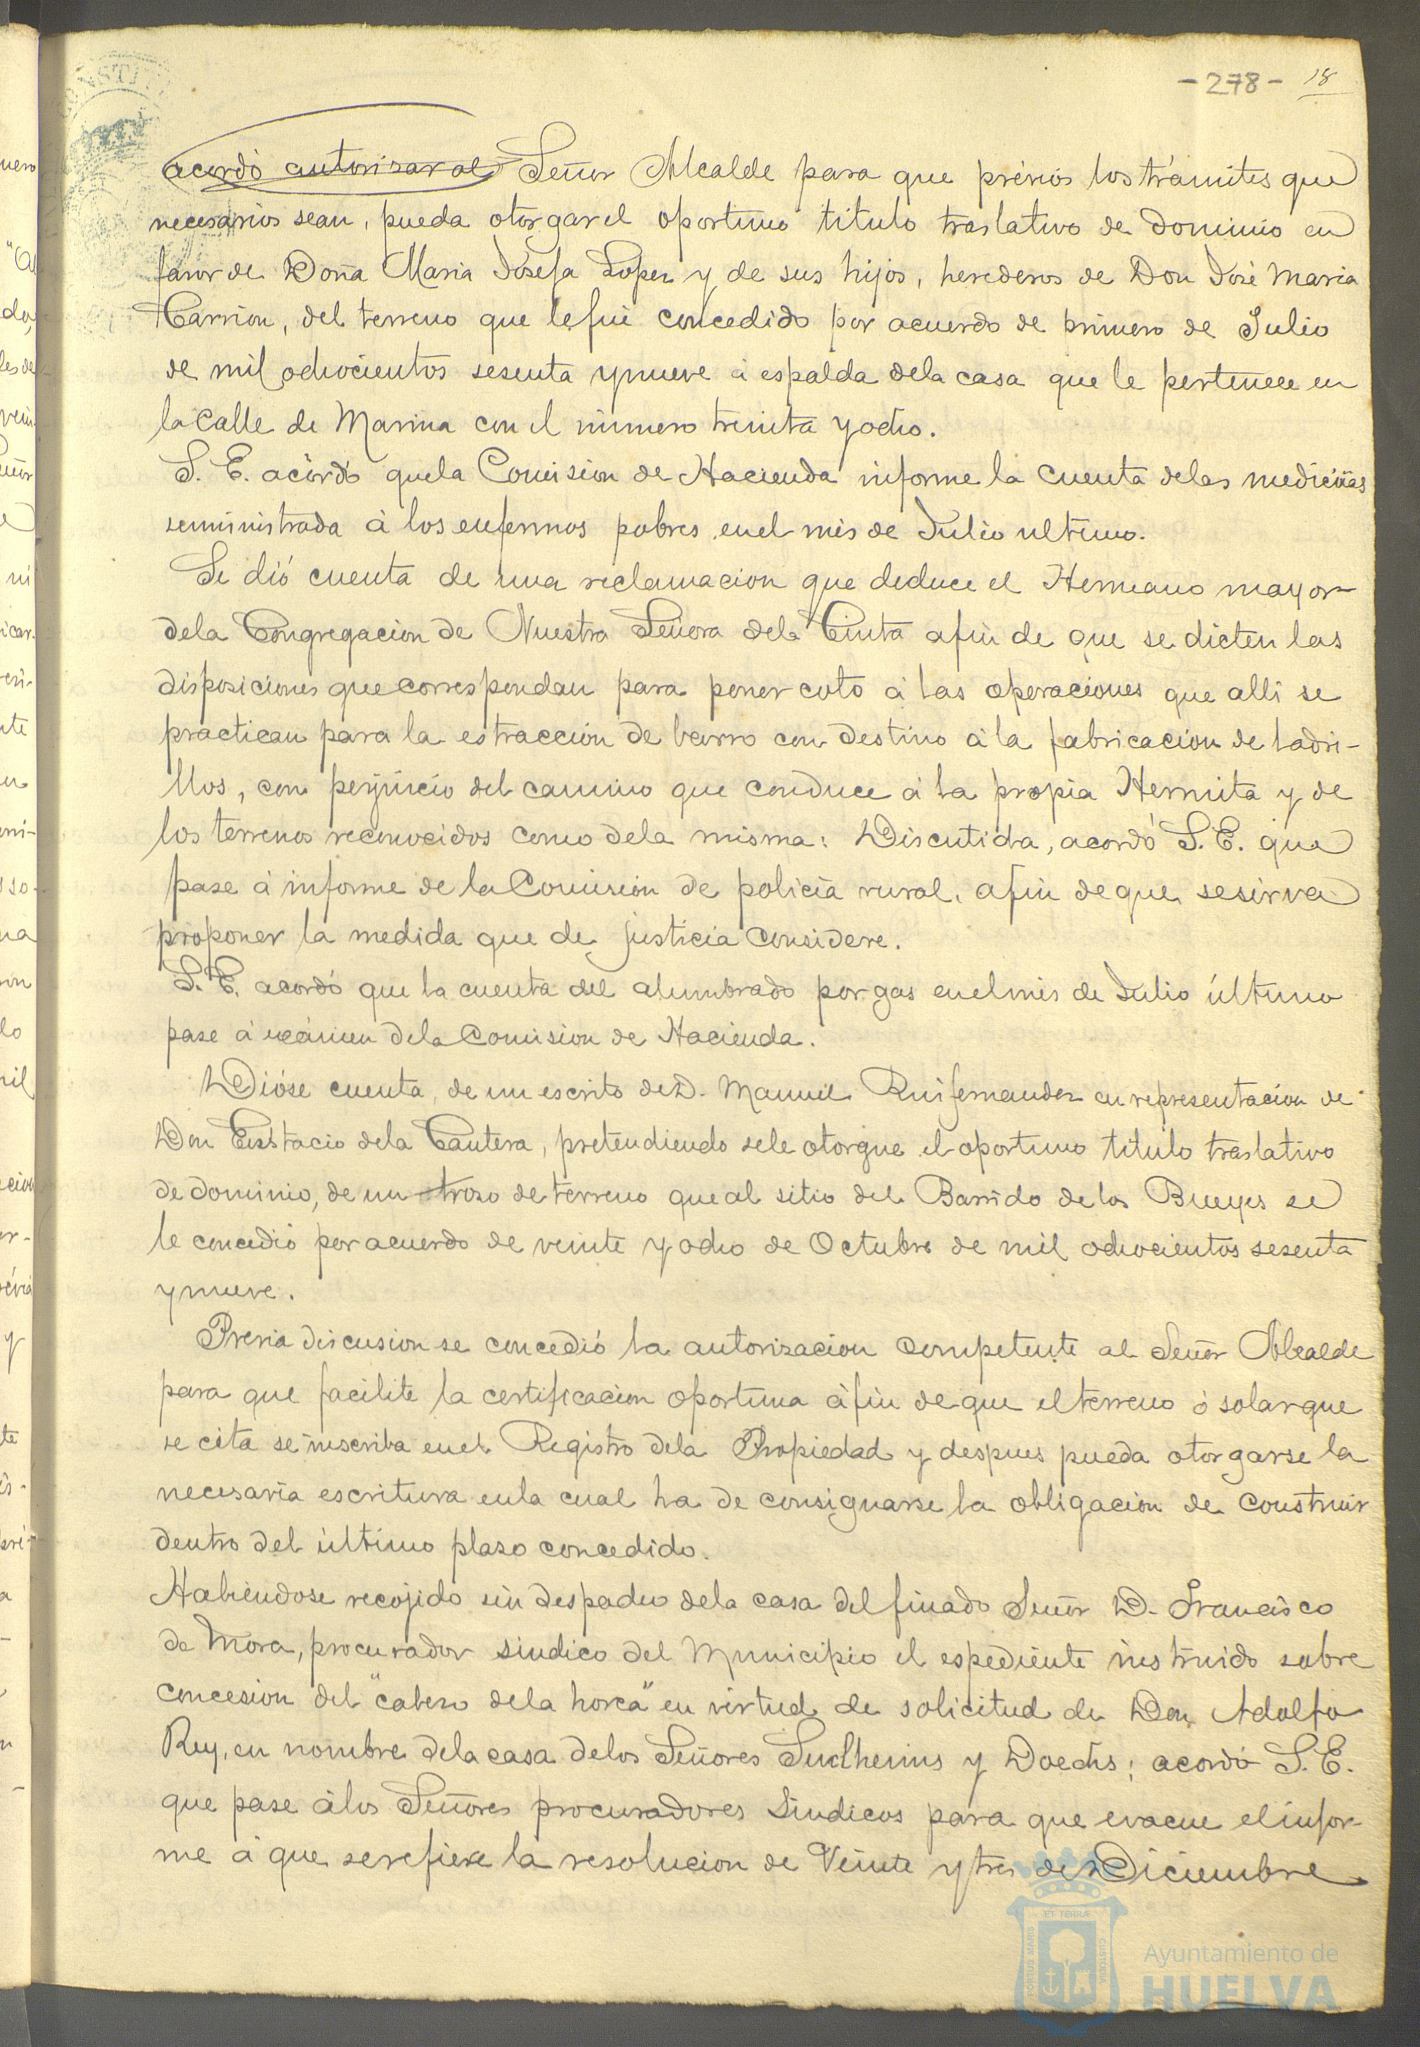 -278- 18
acordó autorizar al Señor Alcalde para que prévios los trámites que
necesarios sean, pueda otorgar el oportuno título traslativo de dominio en
favor de Doña Maria Josefa Lopez y de sus hijos, herederos de Don José Maria
Carrion, del terreno que le fué concedido por acuerdo de primero de Julio
de mil ochocientos sesenta y nueve á espalda dela casa que le pertenece en
la calle de Marina con el número treinta y ocho.
S. E. acordó quela Comision de Hacienda informe la cuenta delas medicinas
seministrada á los enfermos pobres en el mes de Julio ultimo.
Se dió cuenta de una reclamacion que deduce el Hermano mayor
dela Congregacion de Nuestra Señora dela Cinta afin de que se dicten las
disposiciones que correspondan para poner coto á las operaciones que alli se
practican para la estraccion de barro con destino á la fabricacion de ladri-
llos, con perjuicio del camino que conduce á la propia Hermita y de
los terrenos reconocidos como dela misma: Discutida, acordó S. E. que
pase á informe de la Comision de policía rural, afin de que se sirva
proponer la medida que de justicia considere.
S. E. acordó que la cuenta del alumbrado por gas en el mes de Julio último
pase á exámen dela Comision de Hacienda.
Dióse cuenta de un escrito de D. Manuel Ruifernandez en representacion de
Don Eustacio dela Cantera, pretendiendo sele otorgue el oportuno título traslativo
de dominio, de un trozo de terreno que al sitio del Barrido de los Bueyes se
le concedió por acuerdo de veinte y ocho de Octubre de mil ochocientos sesenta
y nueve.
Previa discusion se concedió la autorizacion competente al Señor Alcalde
para que facilite la certificacion oportuna á fin de que el terreno ó solar que
se cita se inscriba en el Registro dela Propiedad y despues pueda otorgarse la
necesaria escritura en la cual ha de consignarse la obligacion de construir
dentro del último plaso concedido.
Habiéndose recojido sin despacho dela casa del finado Señor D. Francisco
de Mora, procurador sindico del Municipio el espediente instruido sobre
concesion del "cabezo dela horca" en virtud de solicitud de Don Adolfo
Rey, en nombre dela casa delos Señores Sundheim y Doetsch; acordó S. E.
que pase á los Señores procuradores Sindicos para que evacue el infor-
me á que se refiere la resolucion de Veinte y tres de Diciembre
Ayuntamiento de
HUELVA